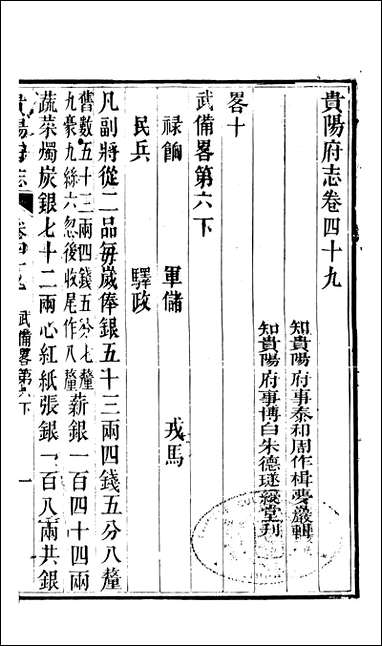 貴陽府志卷四十九
知貴陽府事泰和周作楫夢巖輯
知貴陽府事博白朱德璲綬堂刊
畧十
武備畧第六下
祿餉 軍儲 戎馬
民兵 驛政
凡副將從二品每歲俸銀五十三兩四錢五分八釐
舊數五十三兩四錢五分七釐
九豪九絲六忽後收尾作八釐
薪銀一百四十四兩
蔬菜燭炭銀七十二兩心紅紙張銀一百八兩共銀
貴陽府志 卷四十九 武備畧第六下 一